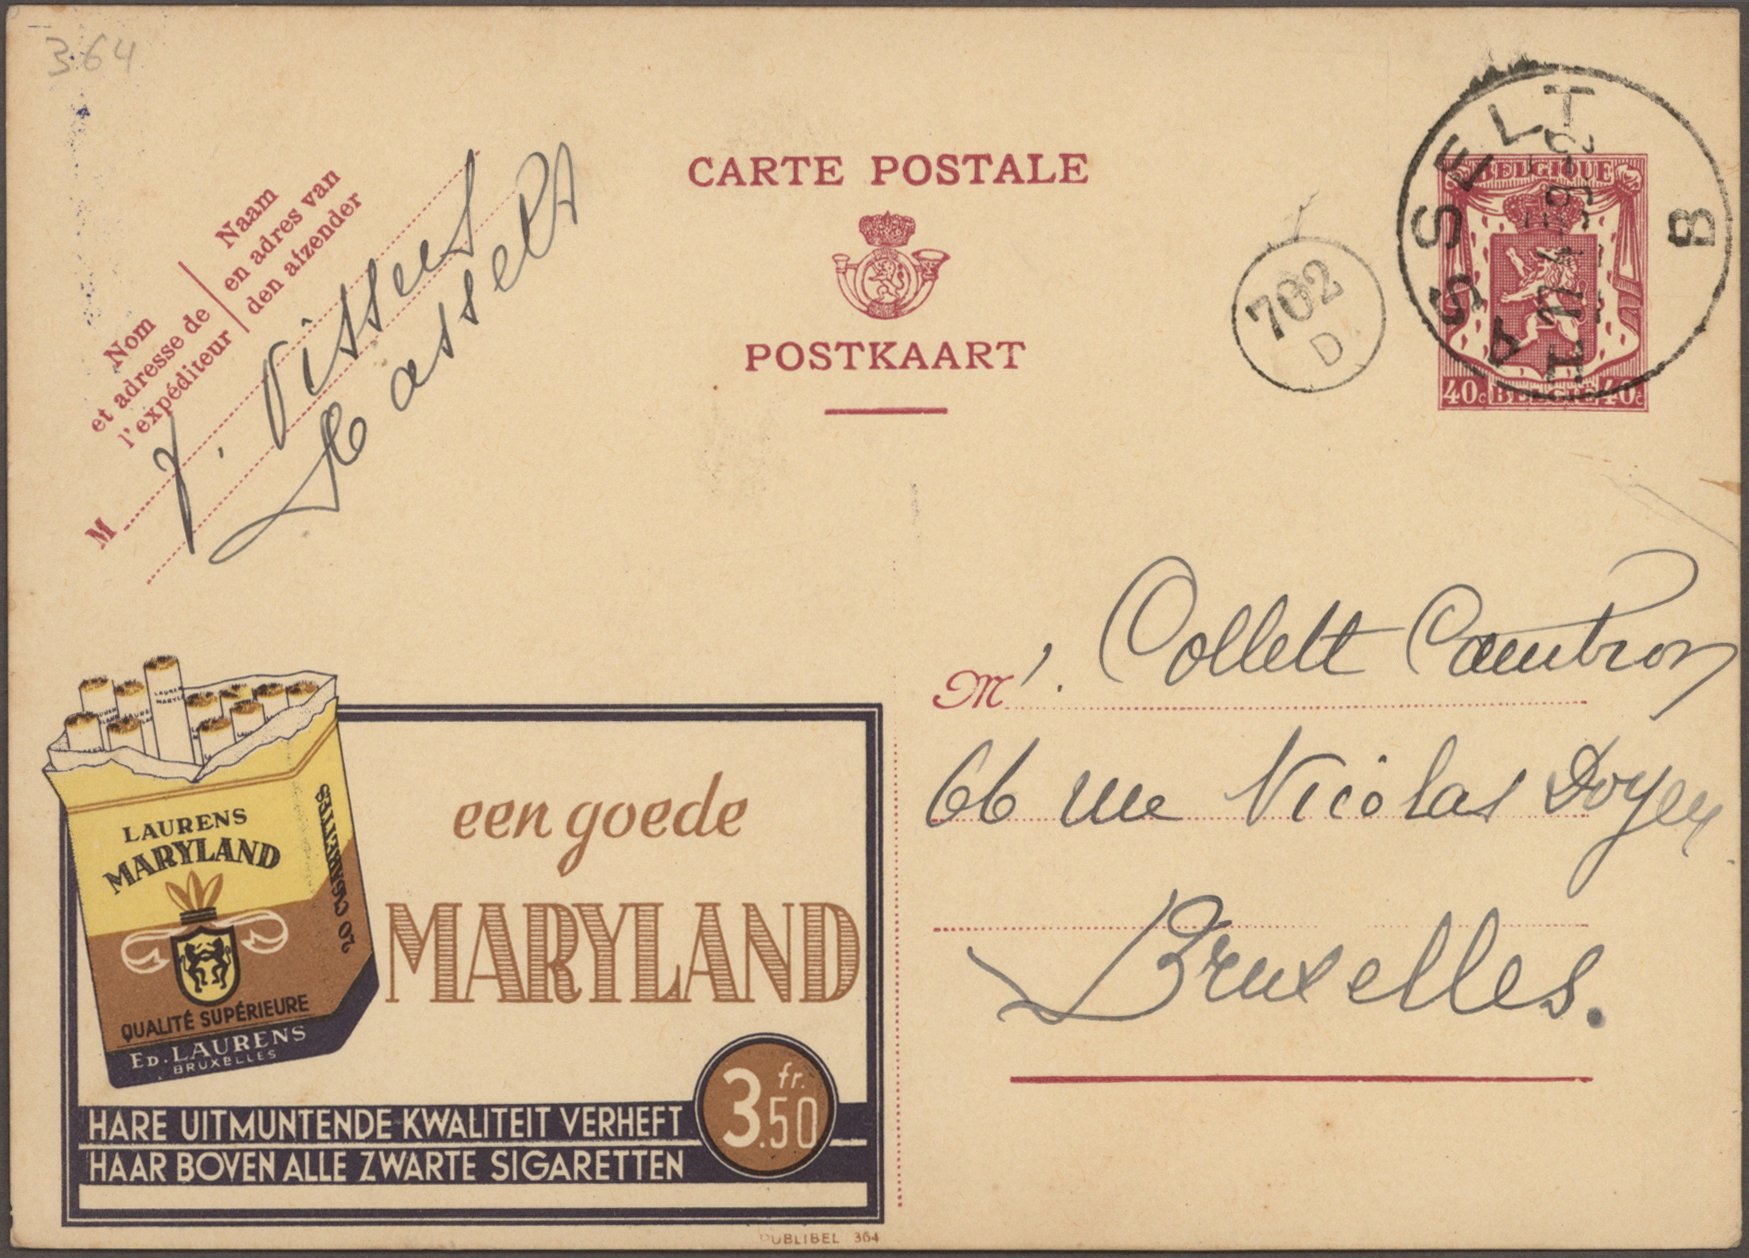 364
CARTE POSTALE
POSTKAART
Nom
et adresse de
l'expéditeur
Naam
en adres van
den afzender
M J. Vissers
Hasselt
702
D
HASSELT
B
BELGIQUE
40c BELGIË 40c
Mr. Collett Cambron
66 rue Nicolas Doyen
Bruxelles.
LAURENS
MARYLAND
20 CIGARETTES
QUALITÉ SUPÉRIEURE
ED. LAURENS
BRUXELLES
een goede
MARYLAND
3.50 fr.
HARE UITMUNTENDE KWALITEIT VERHEFT
HAAR BOVEN ALLE ZWARTE SIGARETTEN
PUBLIBEL 364